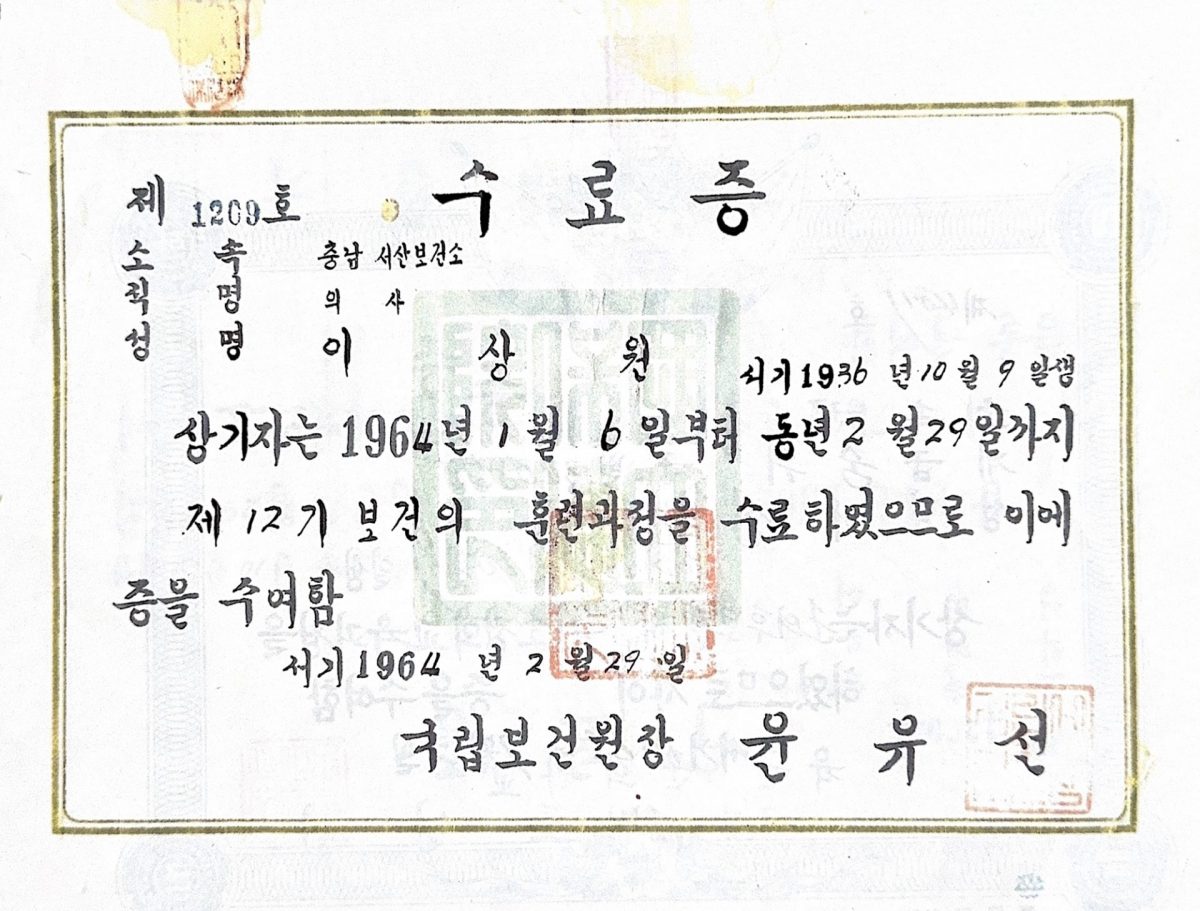 수료증
제 1209호
소 속 충남 서산보건소
직 명 의 사
성 명 이 상 원
서기 1936 년 10 월 9 일생
상기자는 1964년 1 월 6 일부터 동년 2 월 29일까지
제 12 기 보건의 훈련과정을 수료하였으므로 이에
증을 수여함
서기 1964 년 2 월 29 일
국립보건원장 윤 유 선